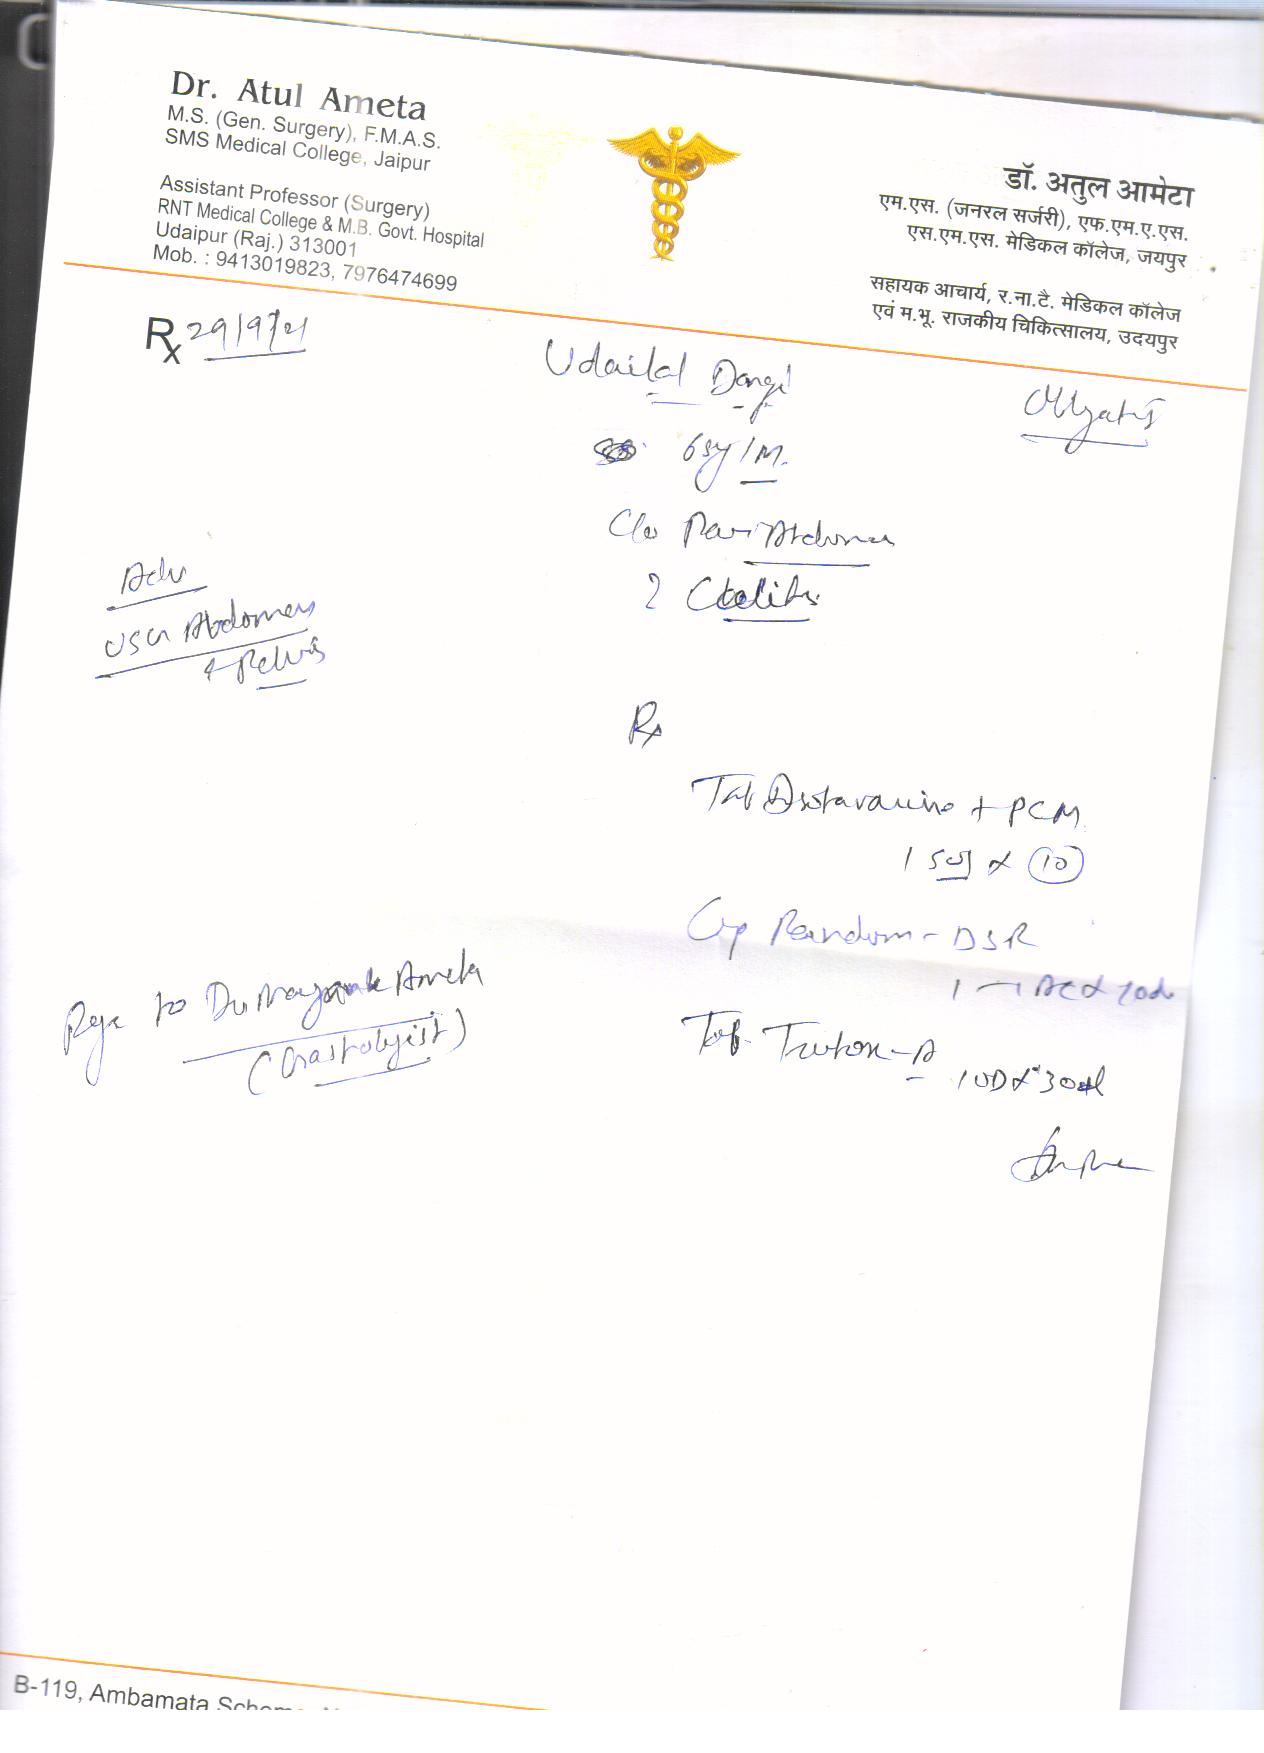 Dr. Atul Ameta
M.S. (Gen. Surgery), F.M.A.S.
SMS Medical College, Jaipur
Assistant Professor (Surgery)
RNT Medical College & M.B. Govt. Hospital
Udaipur (Raj.) 313001
Mob. : 9413019823, 7976474699
डॉ. अतुल आमेटा
एम.एस. (जनरल सर्जरी), एफ.एम.ए.एस.
एस.एम.एस. मेडिकल कॉलेज, जयपुर
सहायक आचार्य, र.ना.टै. मेडिकल कॉलेज
एवं म.भू. राजकीय चिकित्सालय, उदयपुर
Rx 29/9/21
Udailal Dangi
65y/M.
C/o Pain Abdomen
? Colitis
Adv
USG Abdomen
+ Pelvis
Rx
Tab + PCM
1 SOS x 10
Cap - DSR
1 AC x
Tab. - A
1 OD x 30d
to Dr Mayank Ameta
B-119, Ambamata Scheme